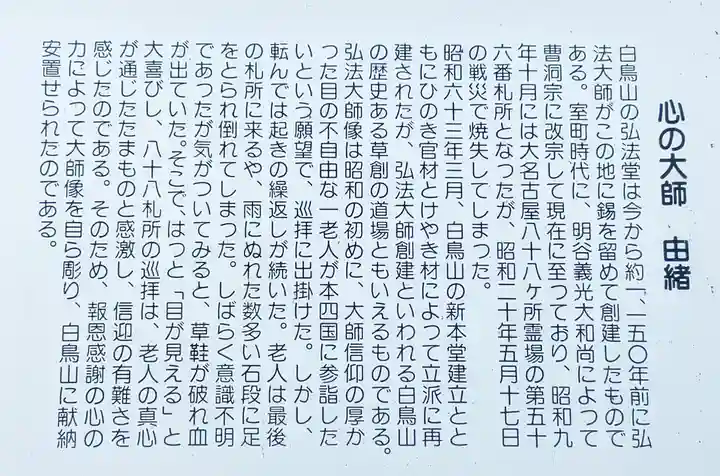 心の大師　由緒
白鳥山の弘法堂は今から約一、一五〇年前に弘
法大師がこの地に錫を留めて創建したもので
ある。室町時代に、明谷義光大和尚によって
曹洞宗に改宗して現在に至っており、昭和九
年十月には大名古屋八十八ヶ所霊場の第五十
六番札所となったが、昭和二十年五月十七日
の戦災で焼失してしまった。
昭和六十三年三月、白鳥山の新本堂建立とと
もにひのき官材とけやき材によって立派に再
建されたが、弘法大師創建といわれる白鳥山
の歴史ある草創の道場ともいえるものである。
弘法大師像は昭和の初めに、大師信仰の厚か
った目の不自由な一老人が本四国に参詣した
いという願望で、巡拝に出掛けた。しかし、
転んでは起きの繰返しが続いた。老人は最後
の札所に来るや、雨にぬれた数多い石段に足
をとられ倒れてしまった。しばらく意識不明
であったが気がついてみると、草鞋が破れ血
が出ていた。そこで、はっと「目が見える」と
大喜びし、八十八札所の巡拝は、老人の真心
が通じたたまものと感激し、信仰の有難さを
感じたのである。そのため、報恩感謝の心の
力によって大師像を自ら彫り、白鳥山に献納
安置せられたのである。